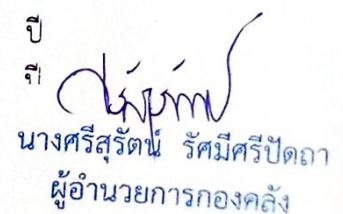 ปี
ที่
นางศรีสุรัตน์ รัศมีศรีปัดถา
ผู้อำนวยการกองคลัง